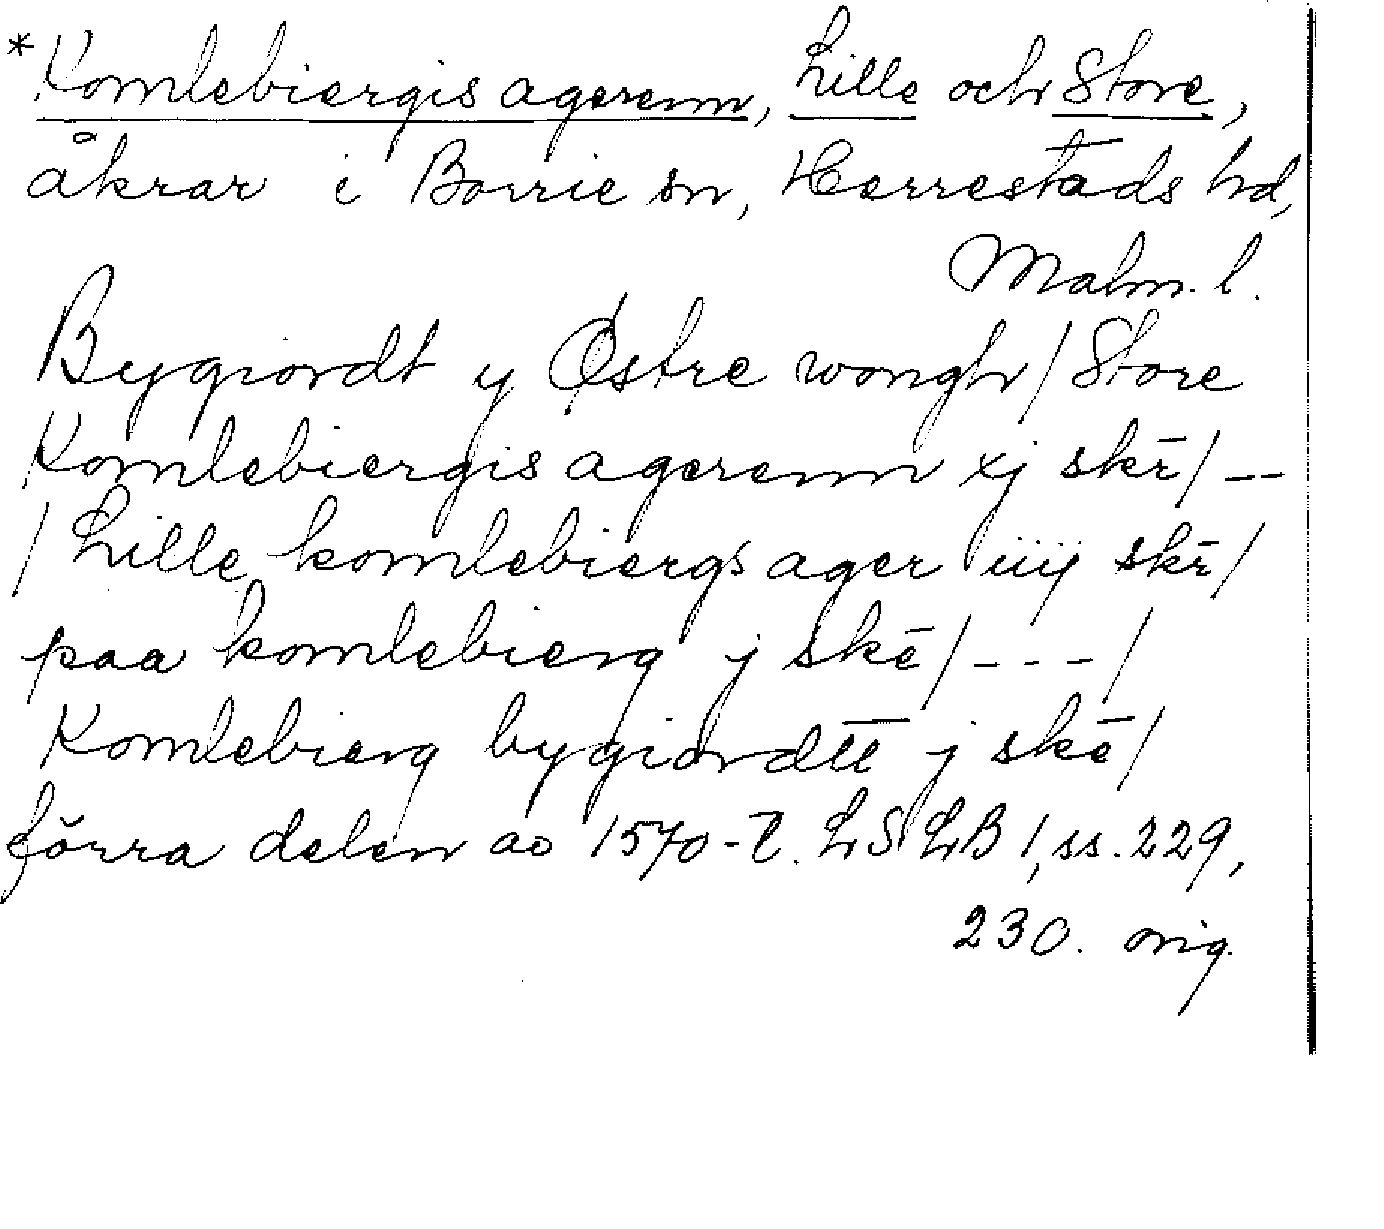 *Komlebiergis agerenn, Lille och Store,
åkrar i Borrie sn, Herrestads hd,
Malm. l.
Bygiordt y Østre wongh / Store
Komlebiergis agerenn xj skr̄ / --
/ Lille komlebiergs ager iiij skr̄ /
paa komlebierg j skē / --- /
Komlebierg bygiordtt j skē /
förra delen av 1570-t. LSLB 1, ss. 229,
230. orig.